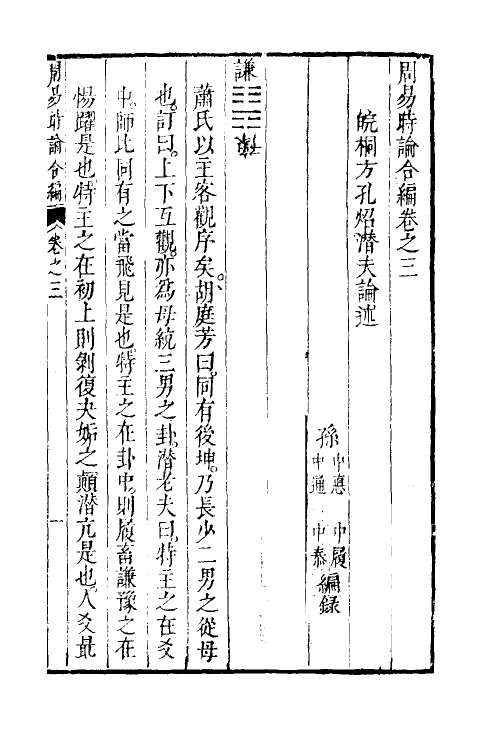 周易時論合編卷之三
皖桐方孔炤潛夫論述
孫中德中履編錄
中通中泰
謙
蕭氏以主客觀序矣胡庭芳曰同有後坤乃長少二男之從母
也訂曰上下互觀亦為母統三男之卦潛老夫曰特主之在爻
中師比同有之當飛見是也特主之在卦中則履畜謙豫之在
惕躍是也特主之在初上則剝復夬姤之顛潛亢是也人爻最
周易時論合編 卷之三 一